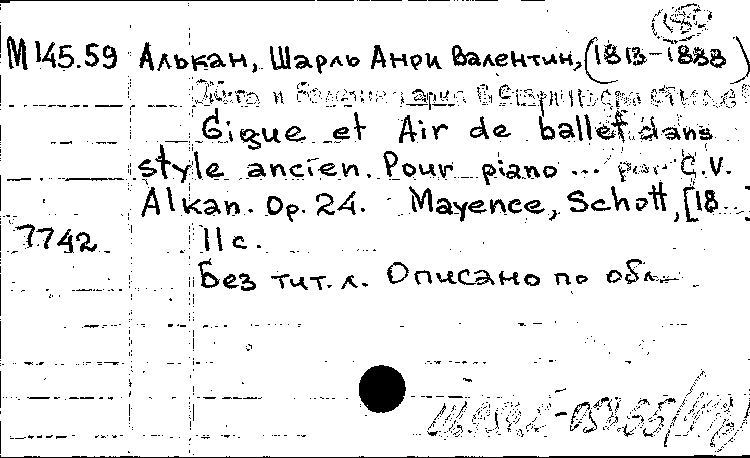 М145.59 Алькан, Шарль Анри Валентин, (1813-1888)
Жига и балетная ария в старинном стиле
Gigue et Air de ballet dans
style ancien. Pour piano ... par C.V.
Alkan. Op. 24. Mayence, Schott, [18..
7742 11 с.
Без тит. л. Описано по обл.